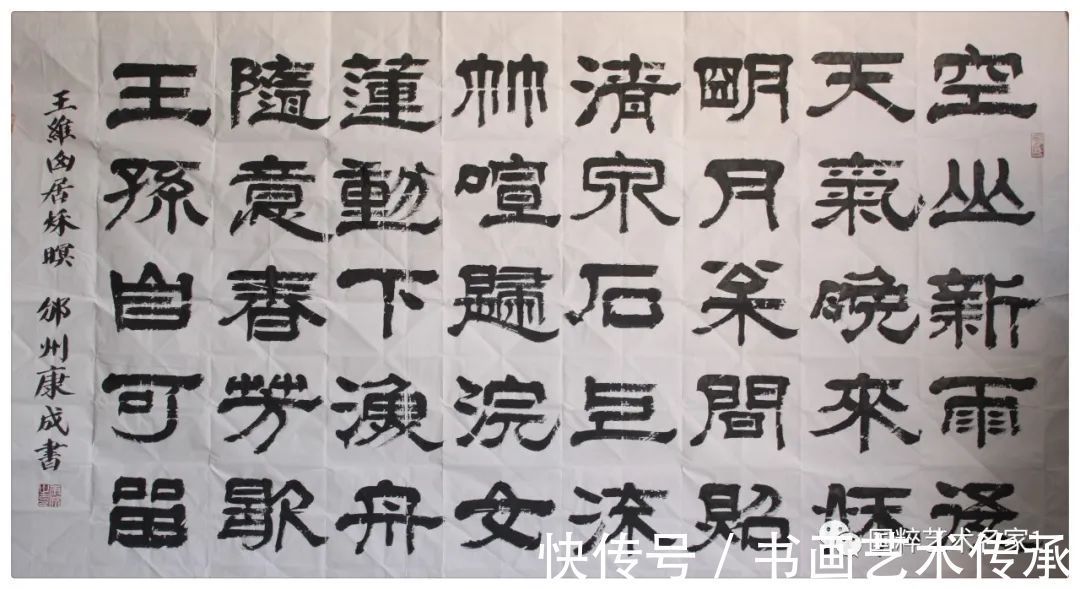 空山新雨後
天氣晚來秋
明月松間照
清泉石上流
竹喧歸浣女
蓮動下漁舟
隨意春芳歇
王孫自可留
王維山居秋暝 邠州康成書
国粹艺术名家
快传号 / 书画艺术传承